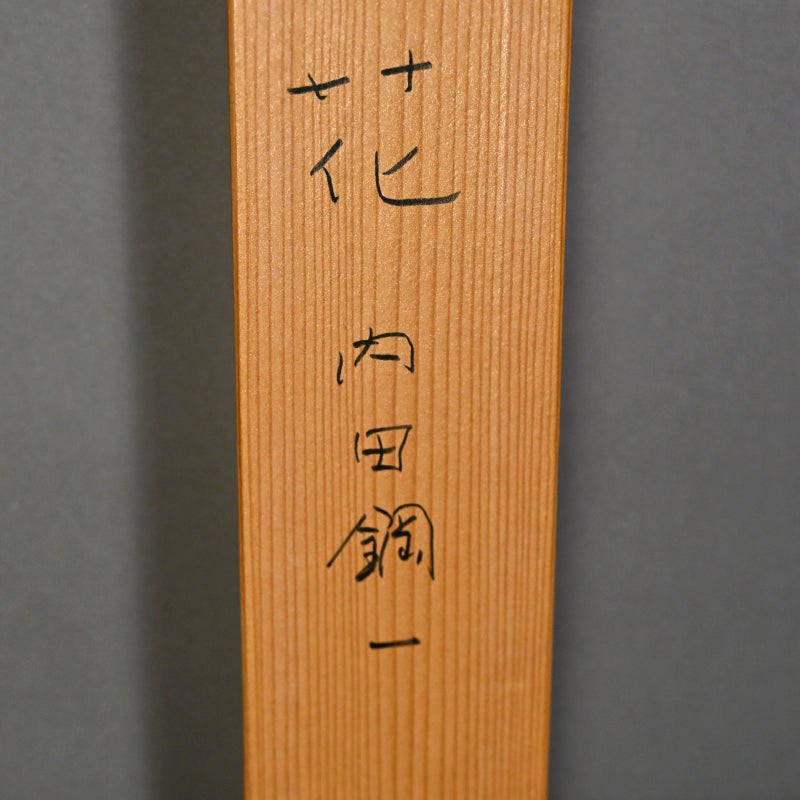 花 内田鋼一